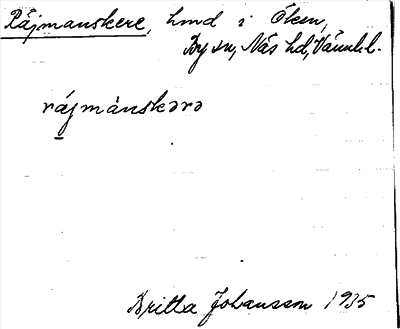 Råjmanskere, hmd i Öken,
By sn, Näs hd, Värml.l.
råjmånskərə
Britta Johansson 1935